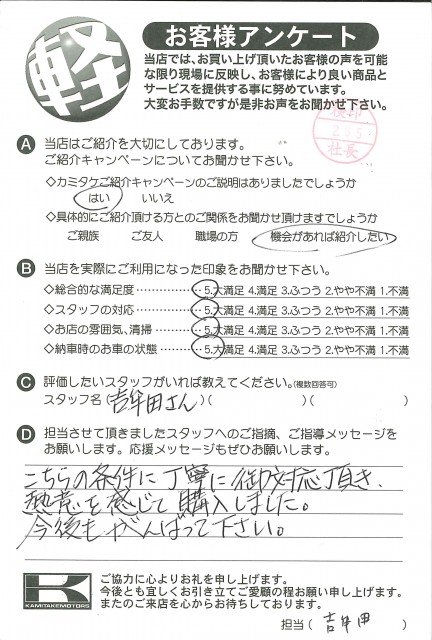 軽
お客様アンケート
当店では、お買い上げ頂いたお客様の声を可能
な限り現場に反映し、お客様により良い商品と
サービスを提供する事に努めています。
大変お手数ですが是非お声をお聞かせ下さい。
検印
社長
A 当店はご紹介を大切にしております。
ご紹介キャンペーンについてお聞かせ下さい。
◇カミタケご紹介キャンペーンのご説明はありましたでしょうか
はい いいえ
◇具体的にご紹介頂ける方とのご関係をお聞かせ頂けますでしょうか
ご親族 ご友人 職場の方 機会があれば紹介したい
B 当店を実際にご利用になった印象をお聞かせ下さい。
◇総合的な満足度 ………… 5.大満足 4.満足 3.ふつう 2.やや不満 1.不満
◇スタッフの対応 ………… 5.大満足 4.満足 3.ふつう 2.やや不満 1.不満
◇お店の雰囲気、清掃 …… 5.大満足 4.満足 3.ふつう 2.やや不満 1.不満
◇納車時のお車の状態 …… 5.大満足 4.満足 3.ふつう 2.やや不満 1.不満
C 評価したいスタッフがいれば教えてください。(複数回答可)
スタッフ名(吉牟田さん)( )( )
D 担当させて頂きましたスタッフへのご指摘、ご指導メッセージを
お願いします。応援メッセージもぜひお願いします。
こちらの条件に丁寧に御対応頂き、
熱意を感じて購入しました。
今後もがんばって下さい。
K
KAMITAKEMOTORS
ご協力に心よりお礼を申し上げます。
今後とも宜しくお引き立てご愛顧の程お願い申し上げます。
またのご来店を心からお待ちしております。
担当(吉牟田)